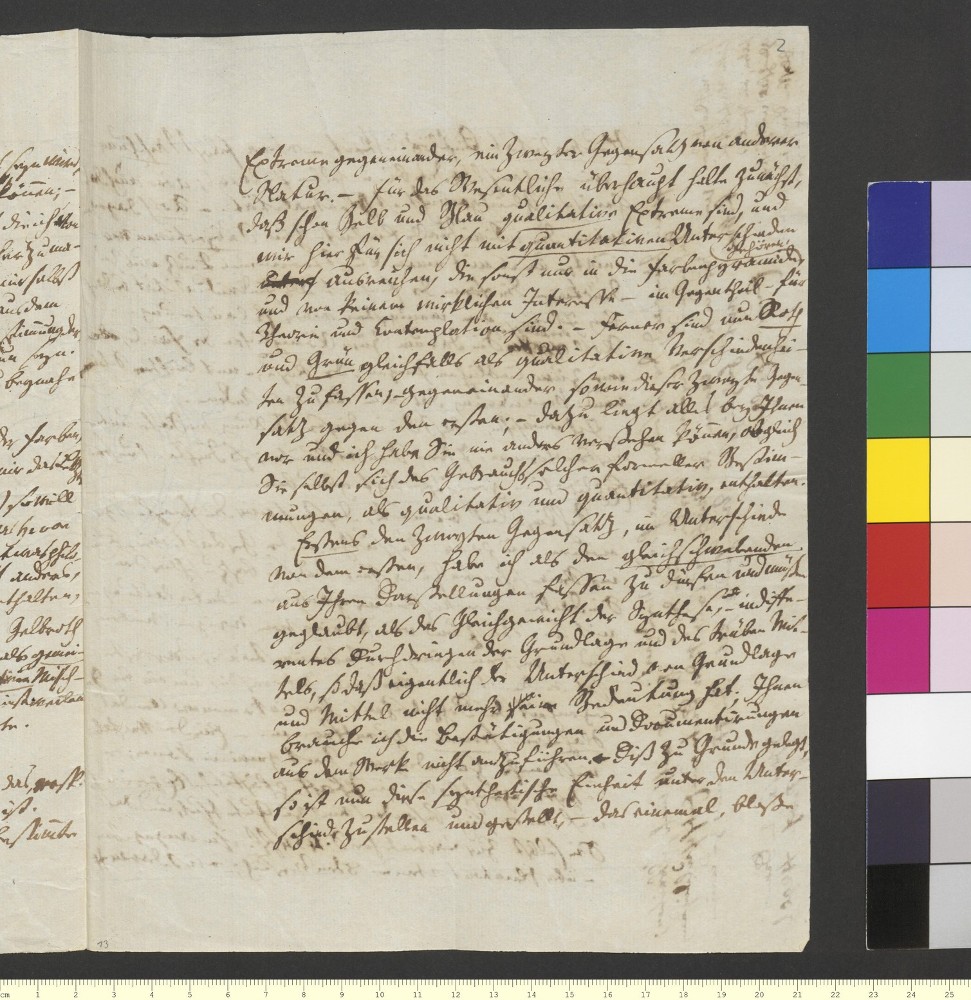 2
Extreme gegeneinander, ein zweyter Gegensatz von anderer
Natur. – Für das Wesentliche überhaupt halte zunächst,
daß schon Gelb und Blau qualitative Extreme sind, und
wir hier für sich nicht mit quantitativen Unterschieden
ausreichen, die sonst nur in die Farbenpyramide gehören
und von keinem wirklichen Interesse – im Gegentheil – für
Theorie und Contemplation sind. – Ferner sind nun Roth
und Grün gleichfalls als qualitative Verschiedenhei-
ten zu fassen, gegeneinander sowie dieser zweyte Gegen-
satz gegen den ersten; – dazu liegt alles bey Ihnen
vor und ich habe Sie nie anders verstehen können, obgleich
Sie selbst sich des Gebrauchs solcher formeller Bestim-
mungen, als qualitativ und quantitativ, enthalten.
Erstens den zweyten Gegensatz, im Unterschiede
von dem ersten, habe ich als den gleichschwebenden
aus Ihren Darstellungen fassen zu dürfen und müssen
geglaubt, als das Gleichgewicht der Synthese, – indiffe-
rentes Durchdringen der Grundlage und des trüben Mit-
tels, so daß eigentlich der Unterschied von Grundlage
und Mittel nicht mehr seine Bedeutung hat. Ihnen
brauche ich die Bestätigungen und Documentirungen
aus dem Werk nicht anzuführen. Diß zu Grunde gelegt,
so ist nun diese synthetische Einheit unter den Unter-
schied zu stellen und gestellt, – das einemal, bloße
13